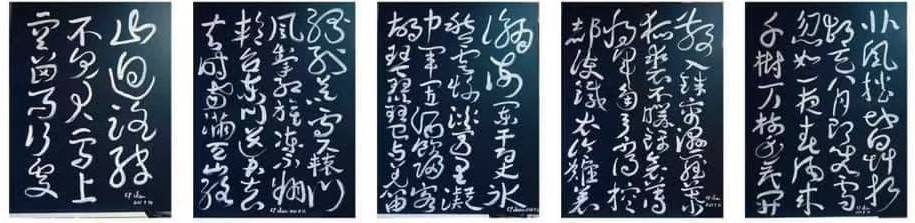 北風捲地白草折
胡天八月即飛雪
忽如一夜春風來
千樹万樹梨花開
散入珠簾濕羅幕
狐裘不暖錦衾薄
將軍角弓不得控
都護鐵衣冷難著
瀚海闌干百丈冰
愁雲慘淡萬里凝
中軍置酒飲歸客
胡琴琵琶與羌笛
紛紛暮雪下轅門
風掣紅旗凍不翻
輪台東門送君去
去時雪滿天山路
山迴路轉
不見君雪上
空留馬行處